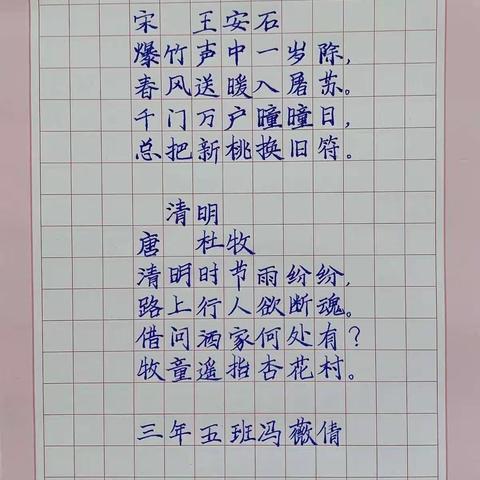 宋 王安石
爆竹声中一岁除，
春风送暖入屠苏。
千门万户曈曈日，
总把新桃换旧符。
清明
唐 杜牧
清明时节雨纷纷，
路上行人欲断魂。
借问酒家何处有？
牧童遥指杏花村。
三年五班冯薇倩